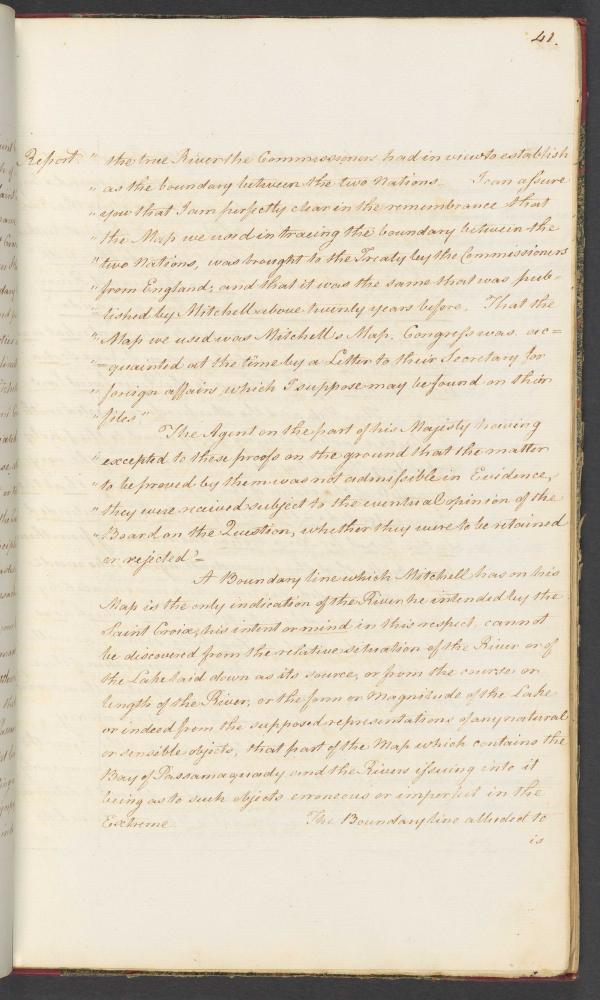 41.
Report " the true River the Commissioners had in view to establish
" as the boundary between the two Nations. I can assure
" you that I am perfectly clear in the remembrance that
" the Map we used in tracing the boundary between the
" two Nations, was brought to the Treaty by the Commissioners
" from England; and that it was the same that was pub-
" lished by Mitchell above twenty years before. That the
" Map we used was Mitchell's Map, Congress was ac=
"=quainted at the time by a Letter to their Secretary for
" foreign affairs which I suppose may be found on their
" files"
The Agent on the part of his Majesty having
" excepted to these proofs on the ground that the matter
" to be proved by them was not admissible in Evidence,
" they were received subject to the eventual opinion of the
" Board on the Question, whether they were to be retained
or rejected"_
A Boundary line which Mitchell has on his
Map is the only indication of the River he intended by the
Saint Croix; his intent or mind in this respect cannot
be discovered from the relative situation of the River or of
the Lake laid down as its source, or from the course or
length of the River, or the form or Magnitude of the Lake
or indeed from the supposed representations of any natural
or sensible objects, that part of the Map which contains the
Bay of Passamaquady and the Rivers issuing into it
being as to such objects erroneous or imperfect in the
Extreme The Boundary line alluded to
is